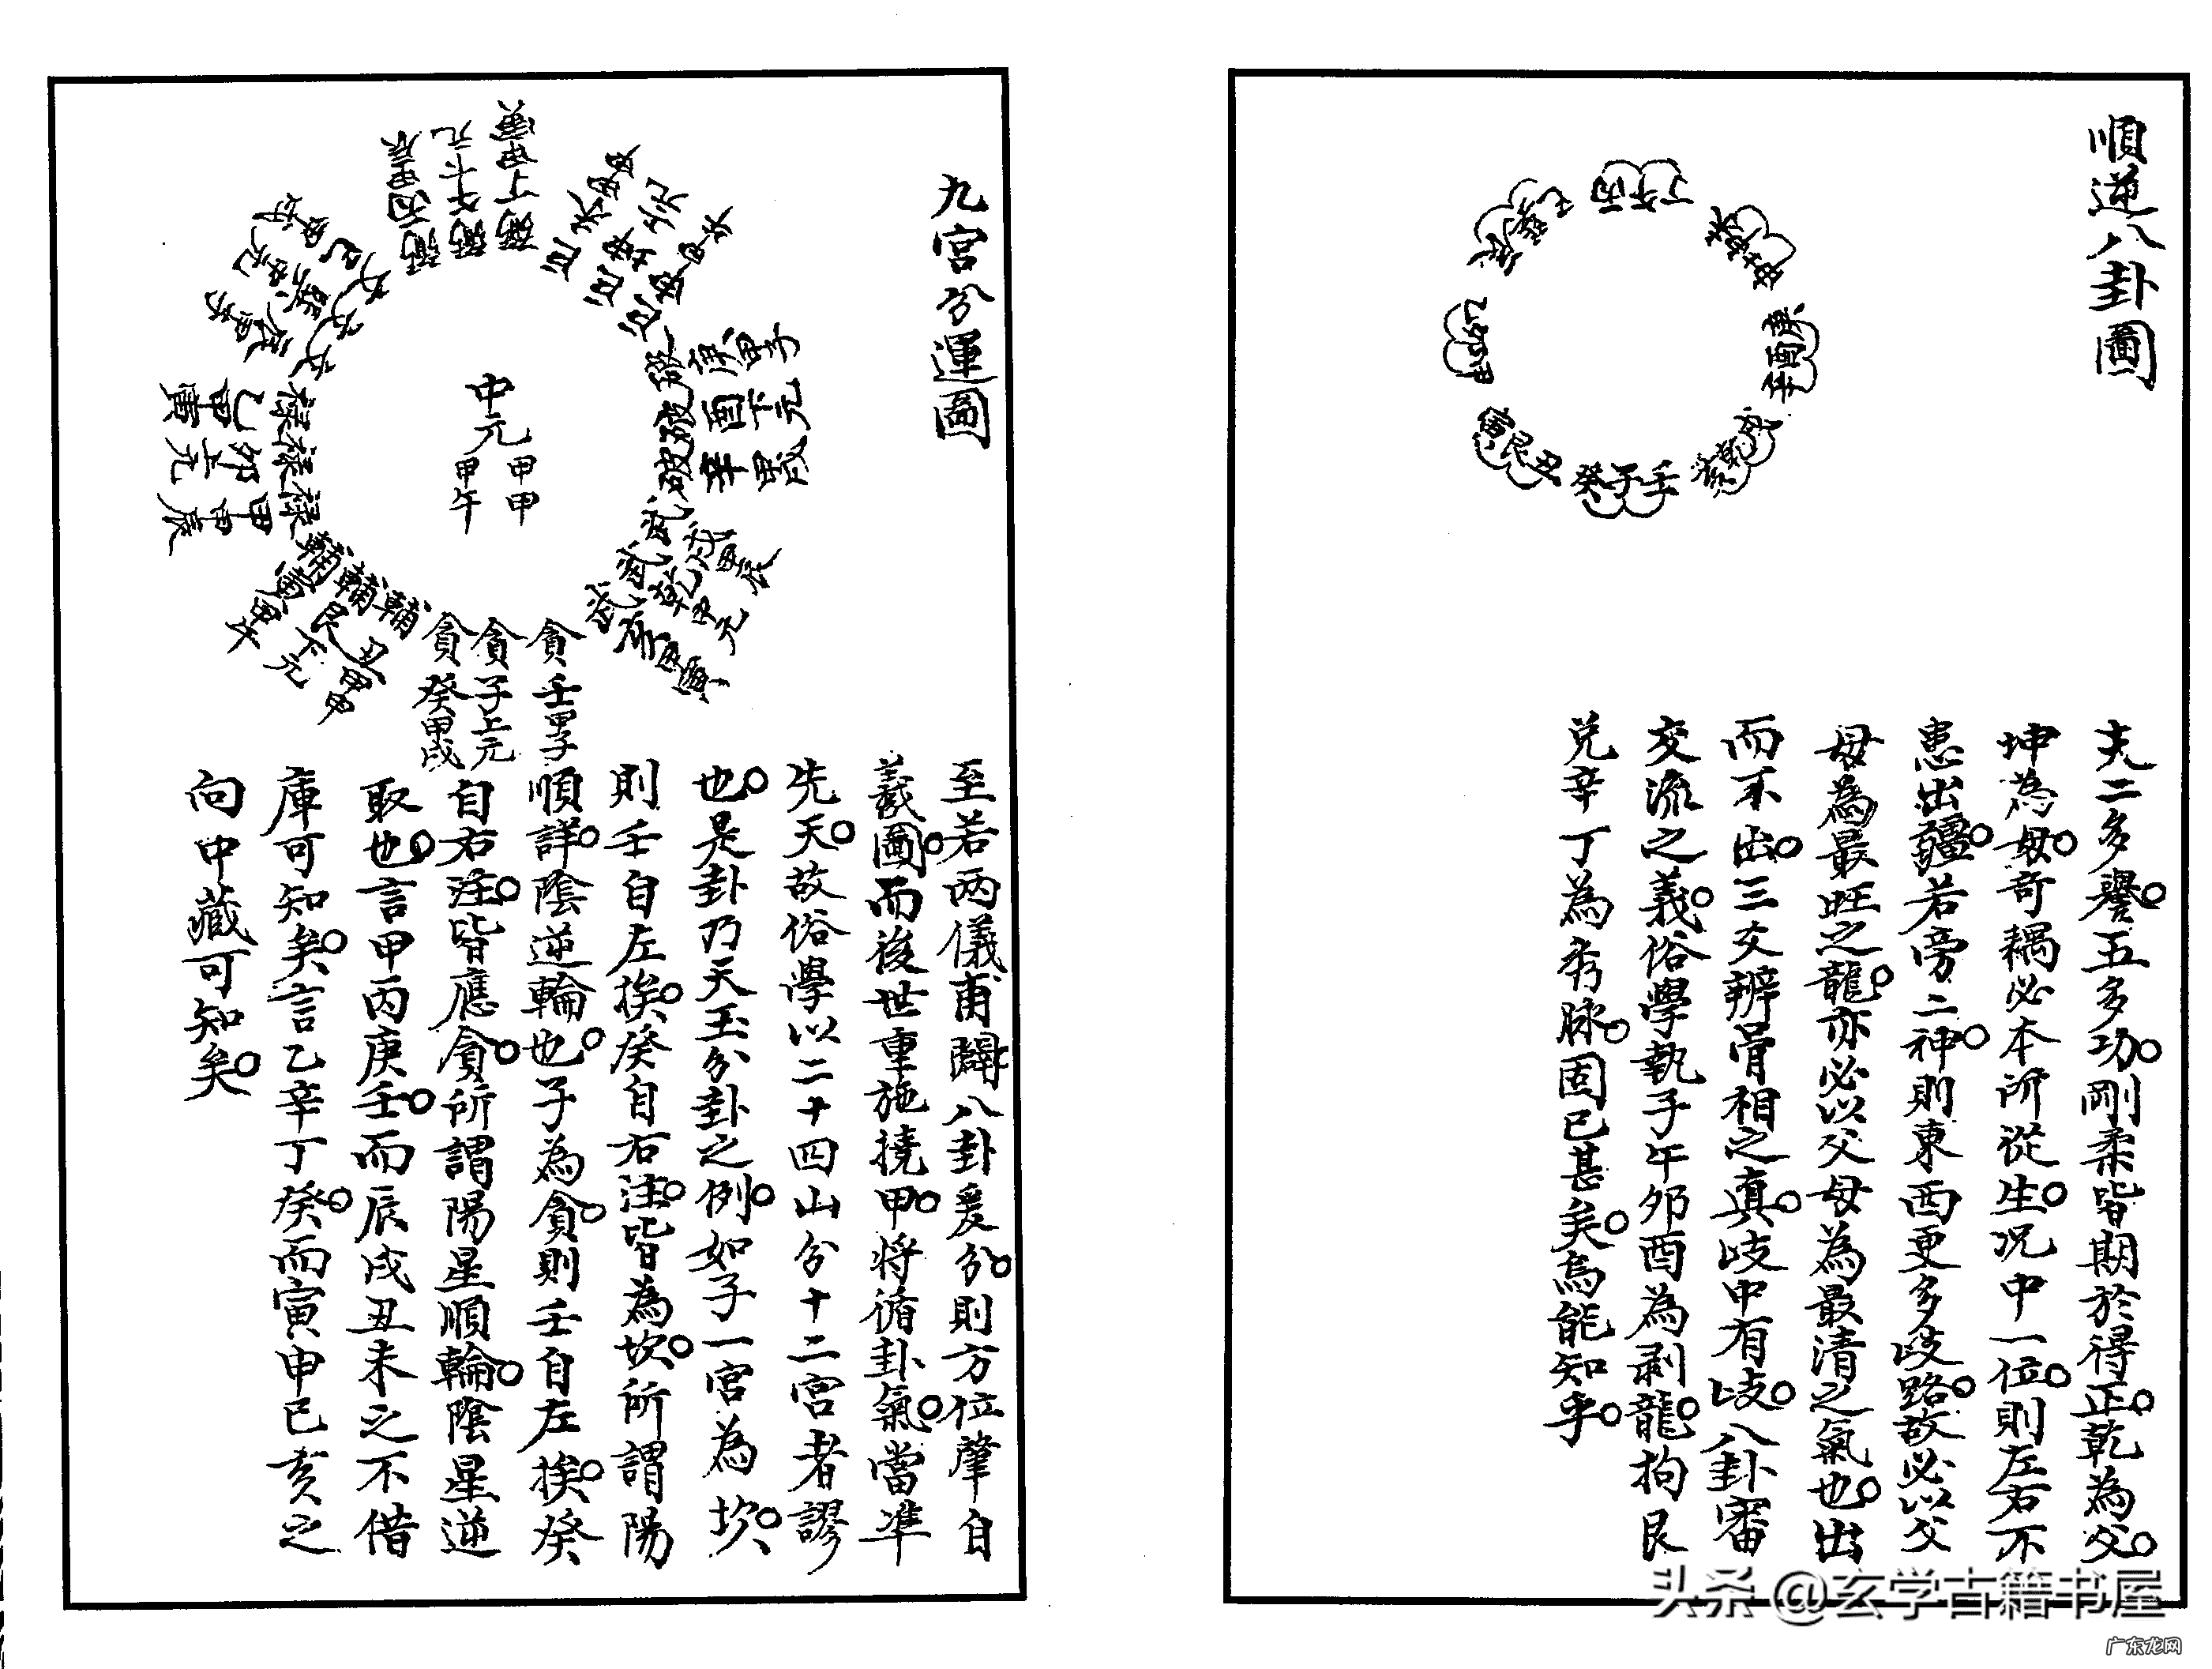 順逆八卦圖
丁午丙
坤申
庚酉辛
戌乾亥
壬子癸
丑艮寅
甲卯乙
辰巽巳
夫二多譽五多功剛柔皆期於得正乾為父
坤為母奇耦必本所從生况中一位則左右不
患出疆若旁二神則東西更多歧路故必以父
母為最旺之龍亦必以父母為最清之氣也出
而不出三爻辨骨相之真歧中有歧八卦審
交流之義俗學執子午卯酉為剥龍拘艮
兌辛丁為秀脉固已甚矣烏能知乎
九宮分運圖
中元
甲申
甲午
弼弼弼
丁午丙
甲寅
元
甲辰
破破破
庚酉辛
甲子
下元
甲戌
武武武
戌乾亥
甲辰
中元
甲寅
貪貪貪
壬子癸
甲子
上元
甲戌
輔輔輔
丑艮寅
甲申
下元
甲午
祿祿祿
甲卯乙
甲辰
上元
甲寅
至若兩儀甫闢八卦爰分則方位肇自
羲圖而後世重施撓甲將循卦氣當準
先天故俗學以二十四山分十二宮者謬
也是卦乃天玉分卦之例如子一宮為坎
則壬自左挨癸自右注皆為坎所謂陽
順詳陰逆輪也子為貪則壬自左挨癸
自右注皆應貪所謂陽星順輪陰星逆
取也言甲丙庚壬而辰戌丑未之不借
庫可知矣言乙辛丁癸而寅申巳亥之
向中藏可知矣
头条 @玄学古籍书屋
广东龙网